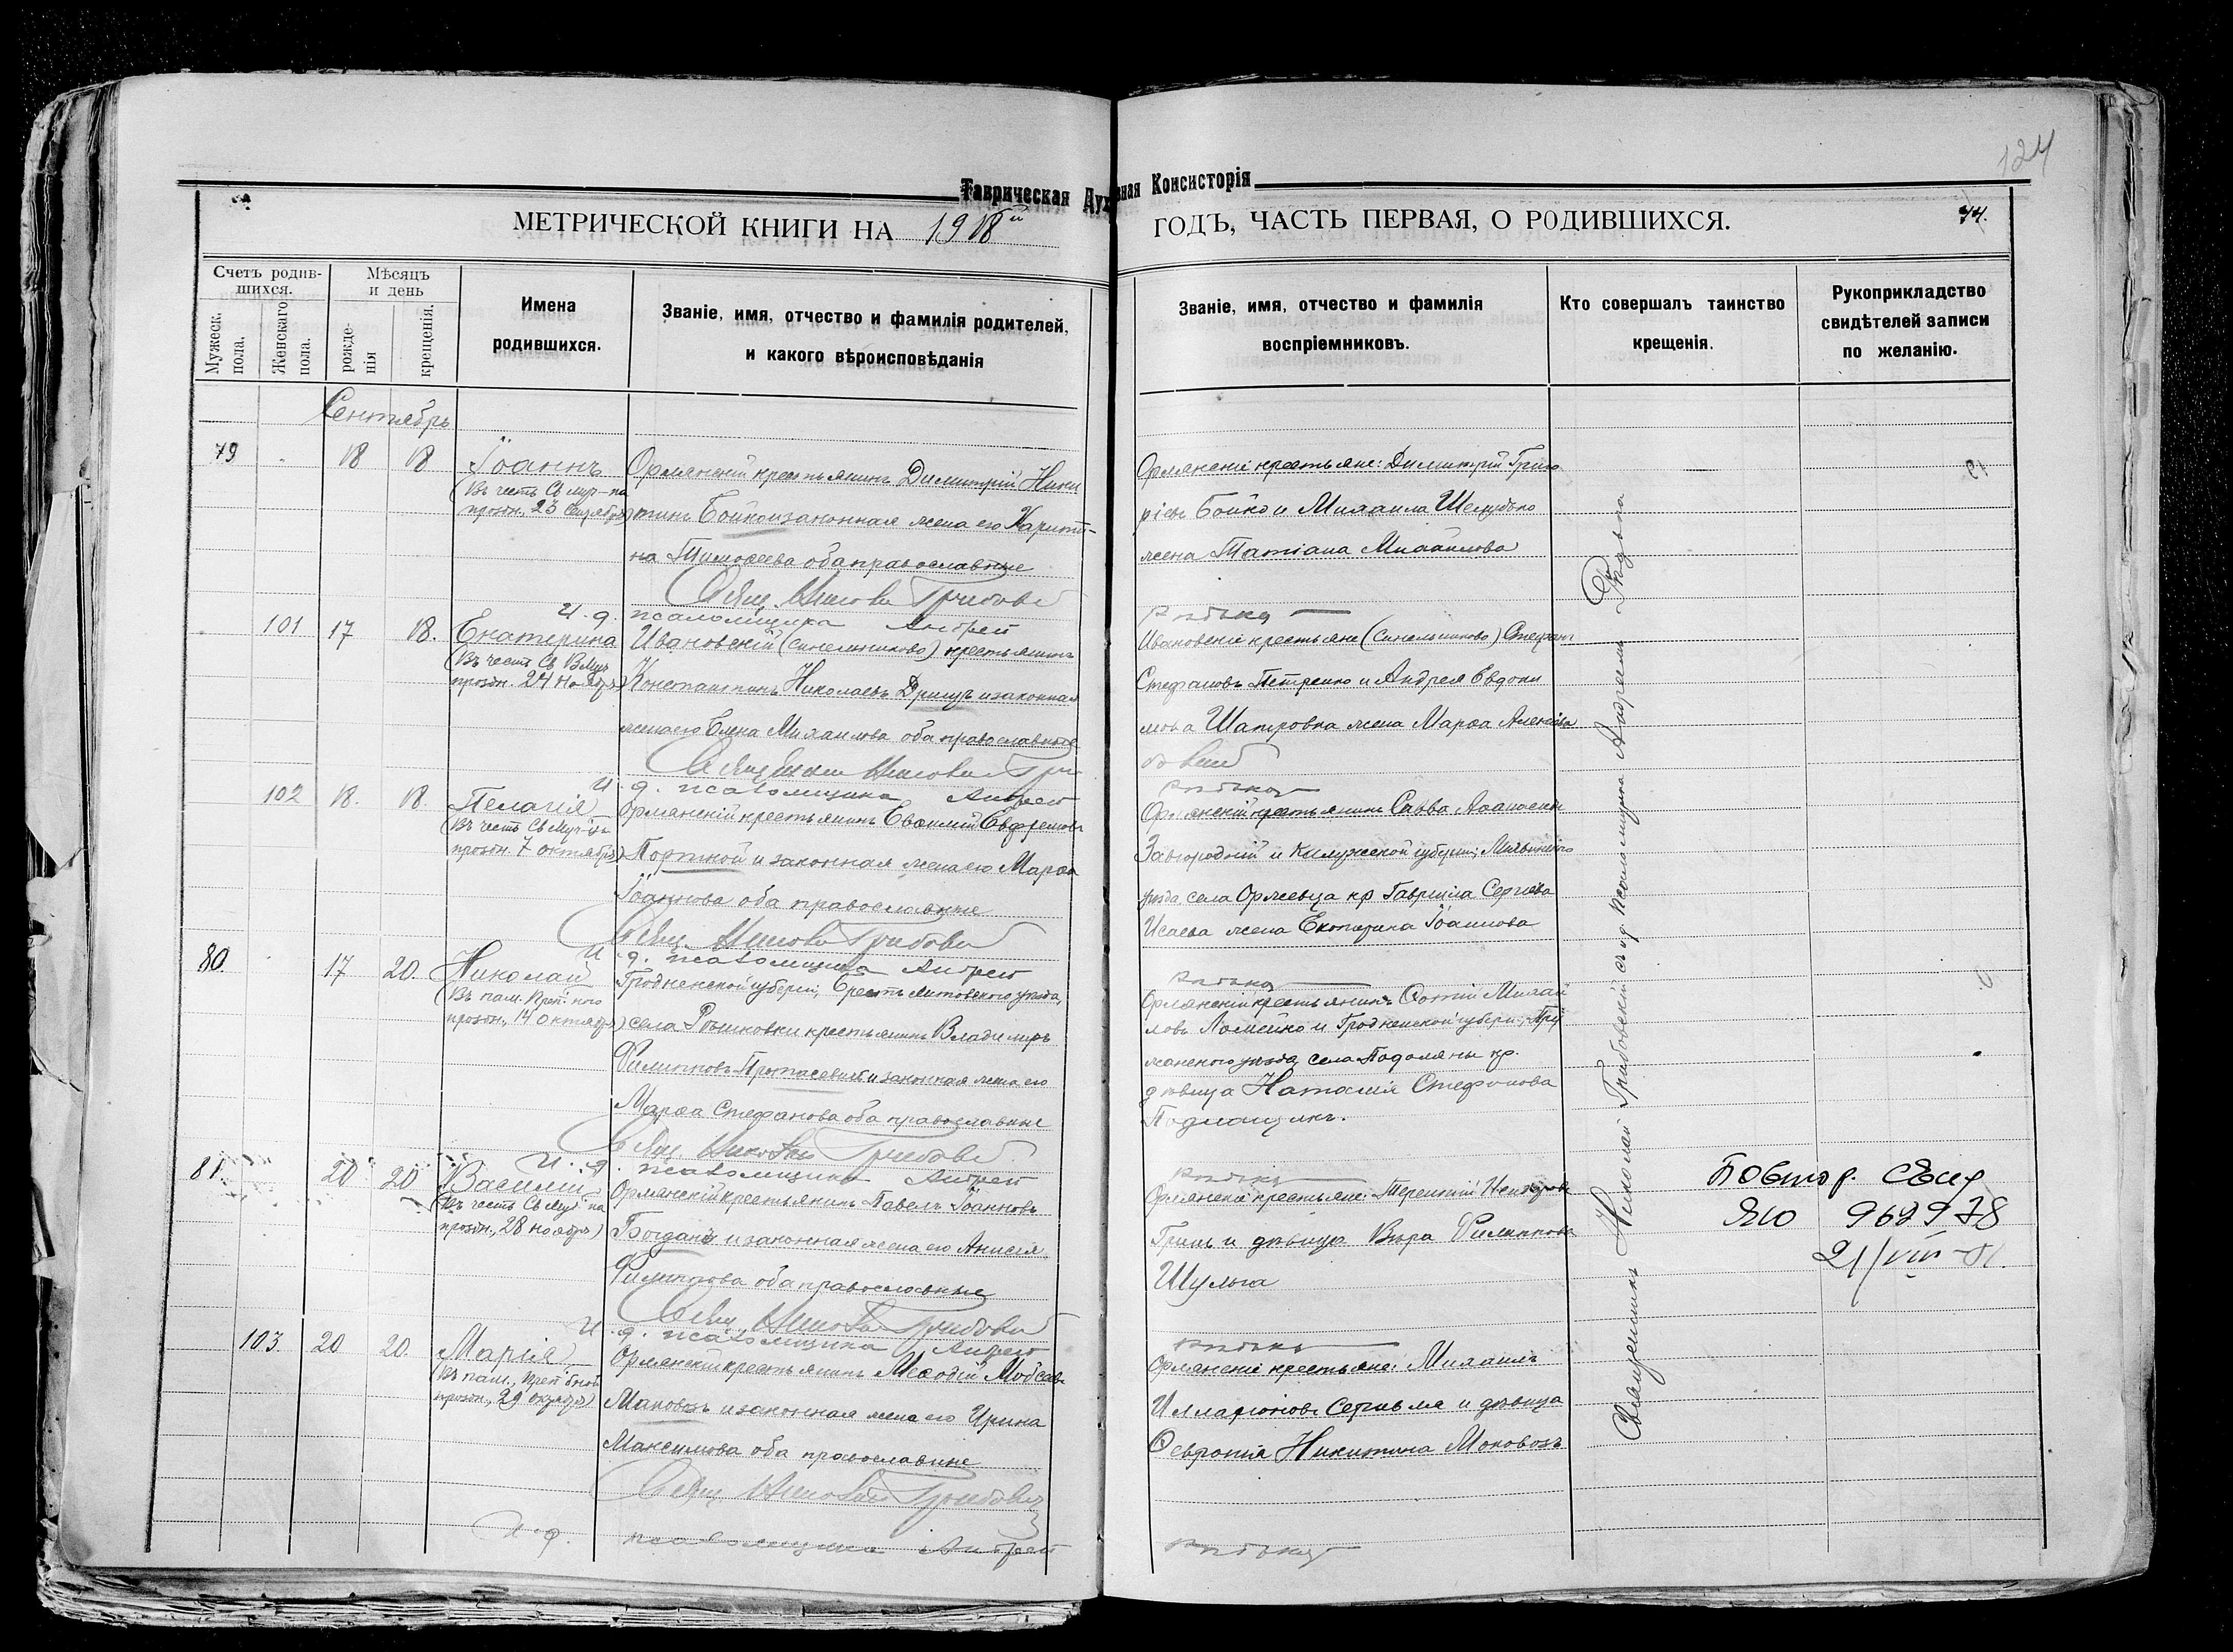 124
Таврическая Духовная Консисторія
МЕТРИЧЕСКОЙ КНИГИ НА 1918й ГОДЪ, ЧАСТЬ ПЕРВАЯ, О РОДИВШИХСЯ.
44.
Счетъ родившихся.
Мужеск. пола.
Женскаго пола.
Мѣсяцъ и день
рожденія
крещенія.
Имена
родившихся.
Званіе, имя, отчество и фамилія родителей,
и какого вѣроисповѣданія
Званіе, имя, отчество и фамилія
воспріемниковъ.
Кто совершалъ таинство
крещенія.
Рукоприкладство
свидѣтелей записи
по желанію.
Сентябрь
79 18 18 Іоаннъ
(Въ честь Св муч-ка
праздн. 23 Сентября)
Орлянскій крестьянинъ Димитрій Ники
тинъ Бойко и законная жена его Харити-
на Тимоѳеева оба православные
Свящ Николай Грибовс
И. д. псаломщика Андрей
Орлянскіе крестьяне: Димитрій Григо
ріевъ Бойко и Михаила Шелудько
жена Татіана Михайлова
101 17 18. Екатерина
(Въ честь Св Вмуч
праздн. 24 Ноября)
Ивановскій (Синельниково) крестьянинъ
Константинъ Николаевъ Дрищъ и законная
жена его Елена Михаилова оба православные
Ивановскіе крестьяне (Синельниково) Стефанъ
Стефановъ Петренко и Андрея Евдоки
мова Шапровка жена Марѳа Алексѣева
И. д. псаломщика Андрей
102 18. 18. Пелагія
(Въ честь Св Муч-цы
праздн. 7 октября)
Орлянскій крестьянинъ Евѳимій Ефремовъ
Портной и законная жена его Марѳа
Іоаннова оба православные
Свящ. Николай Грибовс
И. д. псаломщика Андрей
Орлянскій крестьянинъ Савва Аѳанасьевъ
Завгородній и Калужской губерніи,
уѣзда, села кр Гавріила Сергѣева
Исаева жена Екатерина Іоаннова
80. 17 20. Николай
(Въ пам. Преп-наго
праздн., 14 октября)
Гродненской губерніи, Брестъ литовского уѣзда,
села крестьянинъ Владиміръ
Филипповъ Протасевичъ и законная жена его
Марѳа Стефанова оба православные
Свящ. Николай Грибовс
И. д. псаломщика Андрей
Орлянскій крестьянинъ Фотій Михай
ловъ Ломейко и Гродненской губерніи, Пру
жанскаго уѣзда села Подоляны кр.
дѣвица Наталія Стефанова
81. 20 20 Василій
(Въ честь Св Муч-ка
праздн., 28 ноября)
Орлянскій крестьянинъ Павелъ Іоанновъ
Богданъ и законная жена его Анисія
Филиппова оба православные
Свящ. Николай Грибовс
И. д. псаломщика Андрей
Орлянскіе крестьяне: Терентій
Гриль и дѣвица Вѣра Филиппова
Шульга
Повтор. свид
ЯЮ 962978
21/VIII-
103. 20 20. Марія
(Въ пам., Преп-бной
праздн., 29 октября)
Орлянскій крестьянинъ Меѳодій
Маковозъ и законная жена его Ирина
Максимова оба православные
Свящ. Николай Грибовс
И. д. псаломщика Андрей
Орлянскіе крестьяне: Михаилъ
Илларіоновъ и дѣвица
Ѳевронія Никитина Маковозъ
Священникъ Николай Грибовскій съ и. д. псаломщика Андреемъ Рѣдька